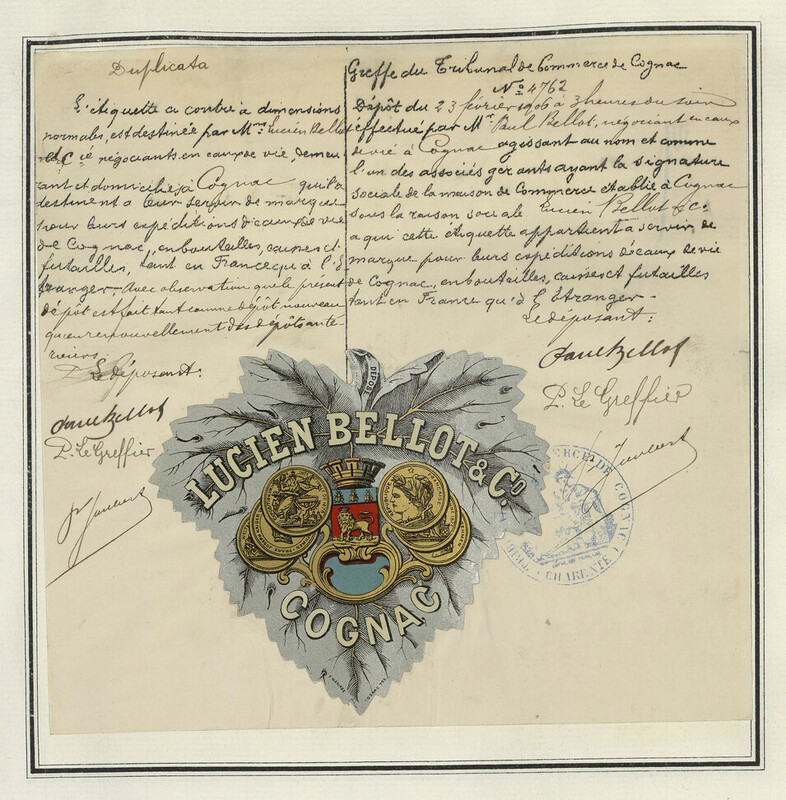 Duplicata
L'étiquette ci contre à dimensions
normales, est destinée par Mrs Lucien Bellot
et Cie négociants en eaux de vie, demeu
rant et domiciliés à Cognac qu'ils
destinent à leur servir de marque
pour leurs expéditions d'eaux de vie
de Cognac, en bouteilles, caisses et
futailles, tant en France qu'à l'é
tranger - Avec observation que le présent
dépôt est fait tant comme dépôt nouveau
qu'en renouvellement des dépôts anté-
rieurs.
Le déposant:
Paul Bellot
P. Le Greffier
Greffe du Tribunal de Commerce de Cognac
No 4762
Dépôt du 23 février 1906 à 3 heures du soir
effectué par Mr Paul Bellot, négociant en eaux
de vie à Cognac agissant au nom et comme
l'un des associés gérants ayant la signature
sociale de la maison de Commerce établie à Cognac
sous la raison sociale Lucien Bellot & Co
à qui cette étiquette appartient à servir de
marque pour leurs expéditions d'eaux de vie
de Cognac, en bouteilles, caisses et futailles
tant en France qu'à l'Etranger -
Le déposant:
Paul Bellot
P. Le Greffier
DÉPOSÉ
LUCIEN BELLOT & Co
COGNAC
COGNAC
CHARENTE